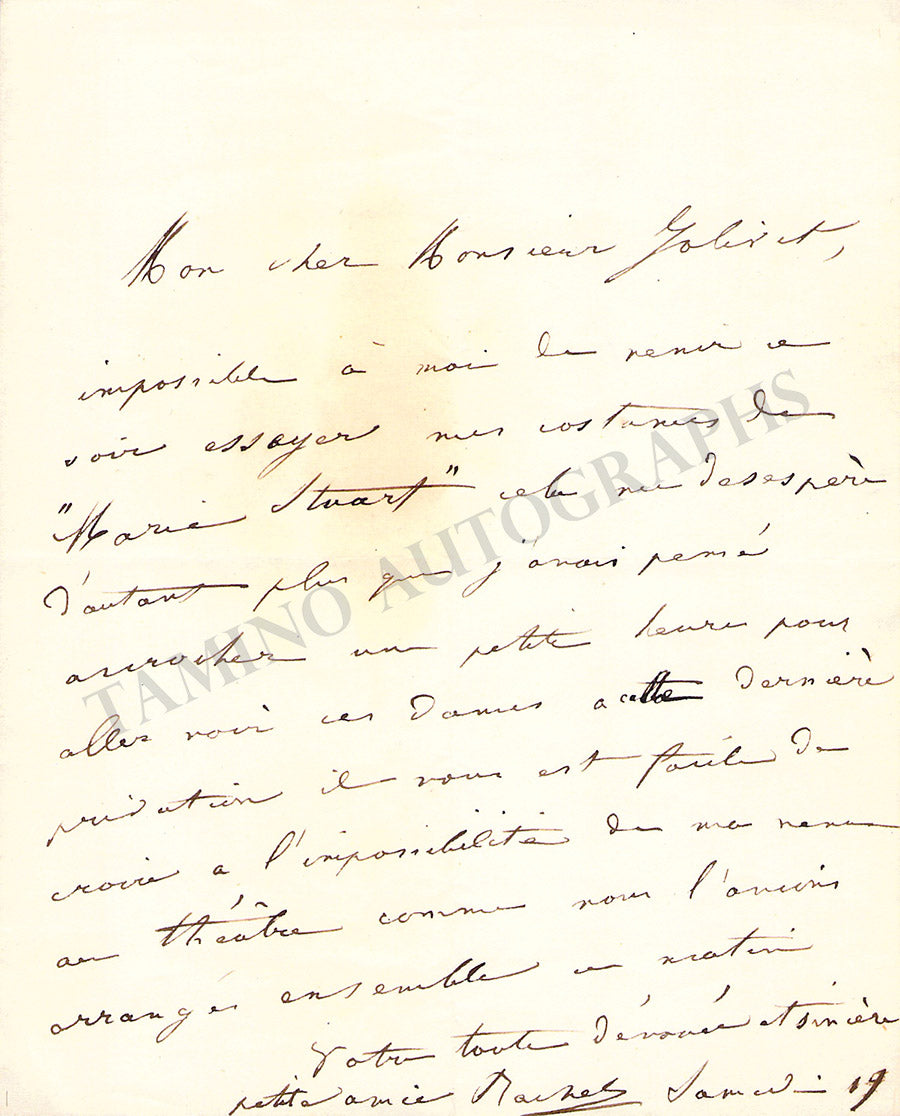 Mon cher Monsieur Jolivet,
impossible à moi de venir ce
soir essayer mes costumes de
"Marie Stuart" cela me desespère
d'autant plus que j'avais pensé
accrocher une petite heure pour
aller voir ces dames a cette dernière
privation il vous est facile de
croire a l'impossibilité de ma venue
au théâtre comme nous l'avions
arrangés ensemble ce matin
Votre toute dévouée et sincère
petite amie Rachel Samedi 19
TAMINO AUTOGRAPHS